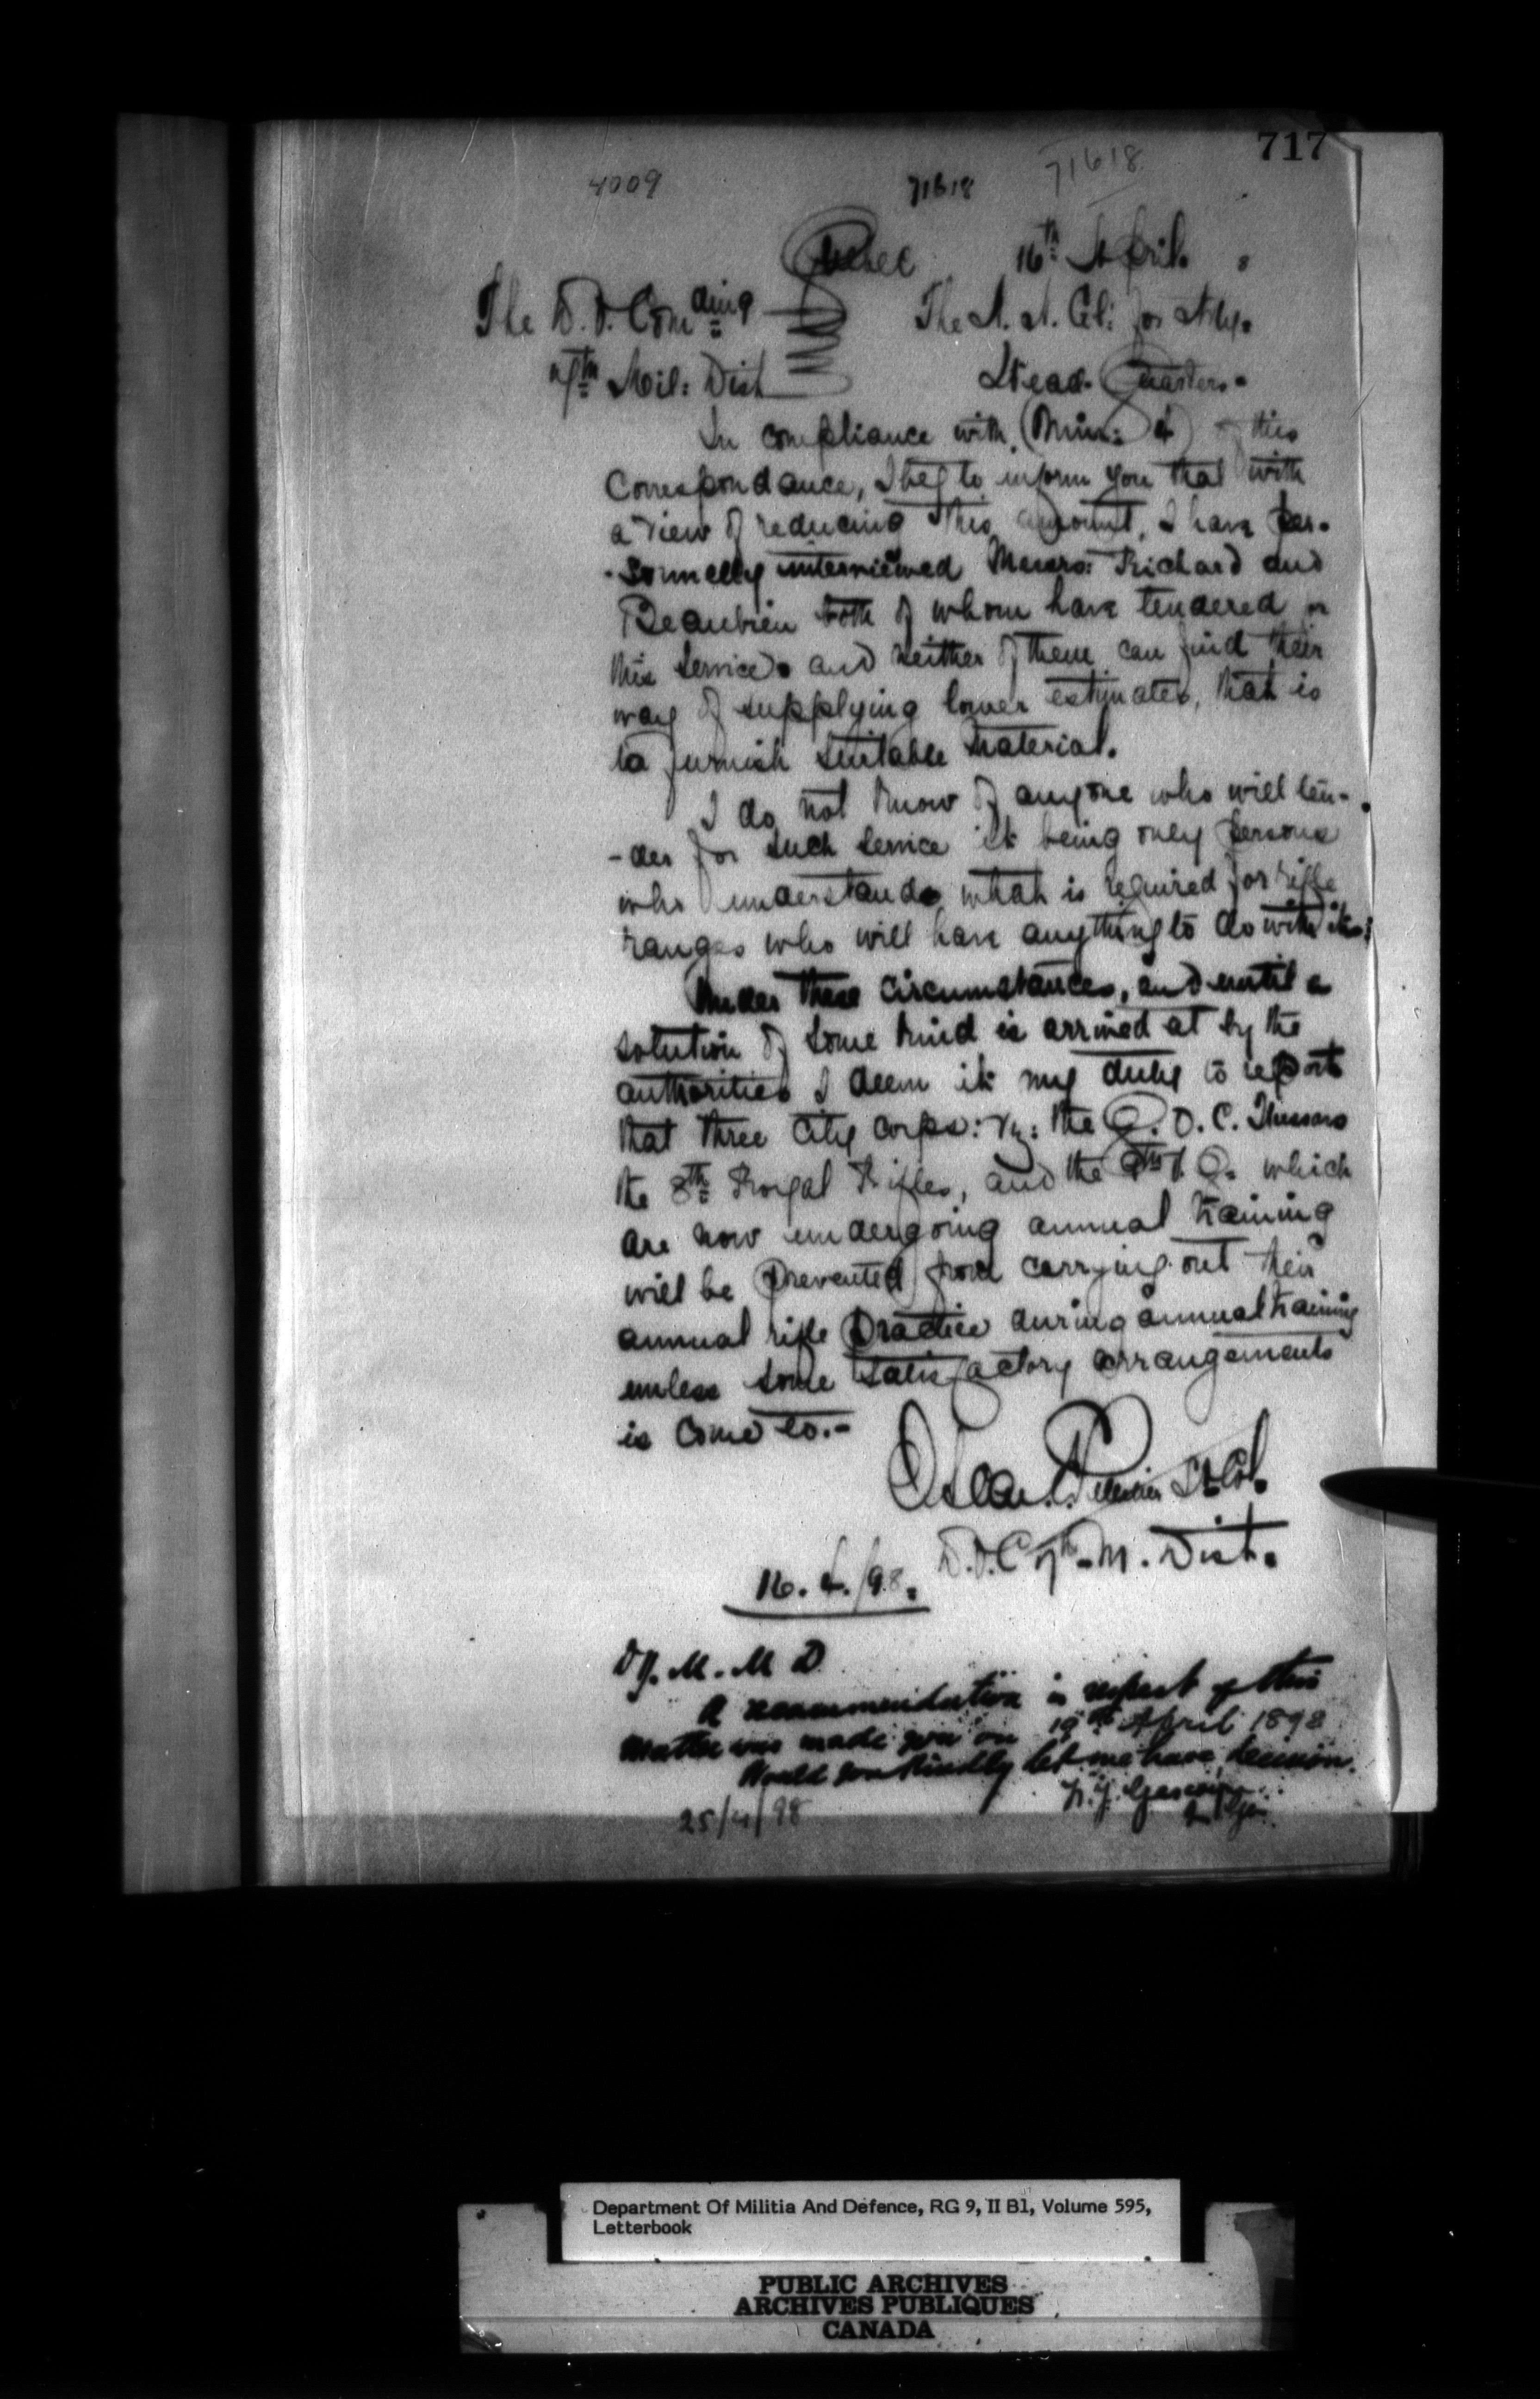 717
4009 71618 71618
Quebec 16th April.
The D.O. Comding The A.A. Gl: for Arty.
7th Mil: Dist Head. Quarters.
In compliance with (Min: 4) of this
Correspondance, I beg to inform you that with
a view of reducing this amount, I have per-
-sonnelly interviewed Messrs: Richard and
Beaubien both of whom have tendered for
this service and neither of them can find their
way of supplying lower estimates, that is
to furnish suitable material.
I do not know of anyone who will ten-
-der for such service it being only persons
who understands what is required for rifle
ranges who will have anything to do with it.
Under these circumstances, and until a
solution of some kind is arrived at by the
authorities I deem it my duty to report
that three City corps: viz: the Q.O.C. Hussars
the 8th Royal Rifles, and the 9th V.Q. which
are now undergoing annual training
will be prevented from carrying out their
annual rifle practice during annual training
unless some satisfactory arrangements
is come to.-
Oscar Pelletier Lt Col.
D.O.C 7th M. Dist.
16.4./98.
D M. M D
A recommendation in respect of this
matter was made you on 19th April 1898
Would you kindly let me have decision.
25/4/98
Department Of Militia And Defence, RG 9, II B1, Volume 595,
Letterbook
PUBLIC ARCHIVES
ARCHIVES PUBLIQUES
CANADA